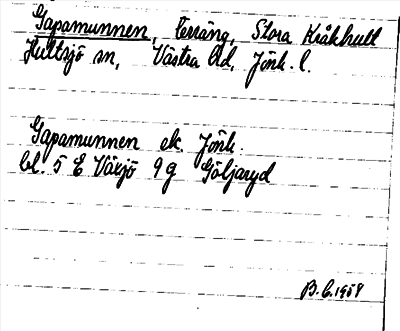 Gapamunnen, terräng, Stora Kråkhult
Hultsjö sn, Västra hd, Jönk. l.
Gapamunnen ek. Jönk.
bl. 5 E Växjö 9 g Göljaryd
B. C. 1958